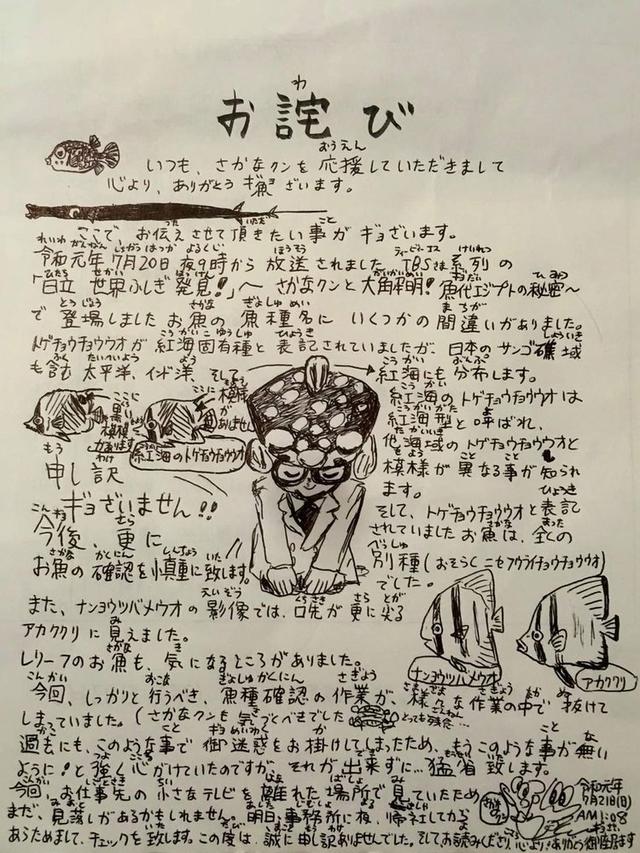 お詫び
いつも、さかなクンを応援していただきまして
心より、ありがとうギョざいます。
ここで お伝えさせて頂きたい事がギョざいます。
令和元年7月20日夜9時から放送されました、TBSさま系列の
「日立 世界ふしぎ発見!」〜さかなクンと大角解明!魚代エジプトの秘密〜
で登場しましたお魚の魚種名にいくつかの間違いがありました。
トゲチョウチョウウオが紅海固有種と表記されていましたが、日本のサンゴ礁域
も含む太平洋、インド洋、そして
紅海にも分布します。
紅海のトゲチョウチョウウオは
紅海型と呼ばれ、
他海域のトゲチョウチョウウオと
模様が異なる事が知られ
ます。
ここに
黒い
模様
があります
ここに
模様
が
ありません
紅海のトゲチョウチョウウオ
もう
申し訳
ギョざいません!!
今後、更に
お魚の確認を慎重に致します。
そして、トゲチョウチョウウオと表記
されていましたお魚は、全くの
別種(おそらくニセフウライチョウチョウウオ)
でした。
また、ナンヨウツバメウオの影像では、口先が更に尖る
アカククリに見えました。
ナンヨウツバメウオ
アカククリ
レリーフのお魚も、気になるところがありました。
今回、しっかりと行うべき、魚種確認の作業が、様々な作業の中で抜けて
しまっていました。(さかなクンも気づくべきでした
過去にも、このような事で御迷惑をお掛けしてしまったため、もうこのような事が無い
ように!と強く心がけていたのですが、それが出来ずに…猛省致します。
今回、お仕事先の小さなテレビを離れた場所で見ていたため
まだ、見落しがあるかもしれません。明日、事務所に夜、帰社してから
あらためまして、チェックを致します。この度は、誠に申し訳ありませんでした。そしてお読みくださり、心よりありがとう御座居ます
令和元年
7月21日(日)
AM1:08